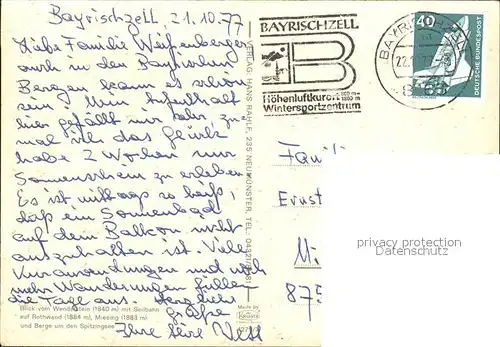 Bayrischzell, 21.10.77
Liebe Familie Weißenberger
auch in den Bayrischen
Bergen kann es schön
sein! Mein Aufenthalt
hier gefällt mir sehr, zu-
mal ich das Glück
habe 2 Wochen nur
Sonnenschein zu erleben
Es ist mittags so heiß,
daß ein Sonnenbad
auf dem Balkon nicht
auszuhalten ist. Viele
Kuranwendungen und noch
mehr Wanderungen füllen
die Tage aus. Herzliche
Grüße
Ihre
Blick vom Wendelstein (1840 m) mit Seilbahn
auf Rothwand (1884 m), Miesing (1883 m)
und Berge um den Spitzingsee
VERLAG: HANS RAHLF, 235 NEUMÜNSTER, TEL: 04321/
Made by
Krüger
BAYRISCHZELL
B
Höhenluftkurort 800 m -
1800 m
Wintersportzentrum
BAYRISCHZELL
22.
40
DEUTSCHE BUNDESPOST
Famili
Ernst
M.
875
privacy protection
Datenschutz